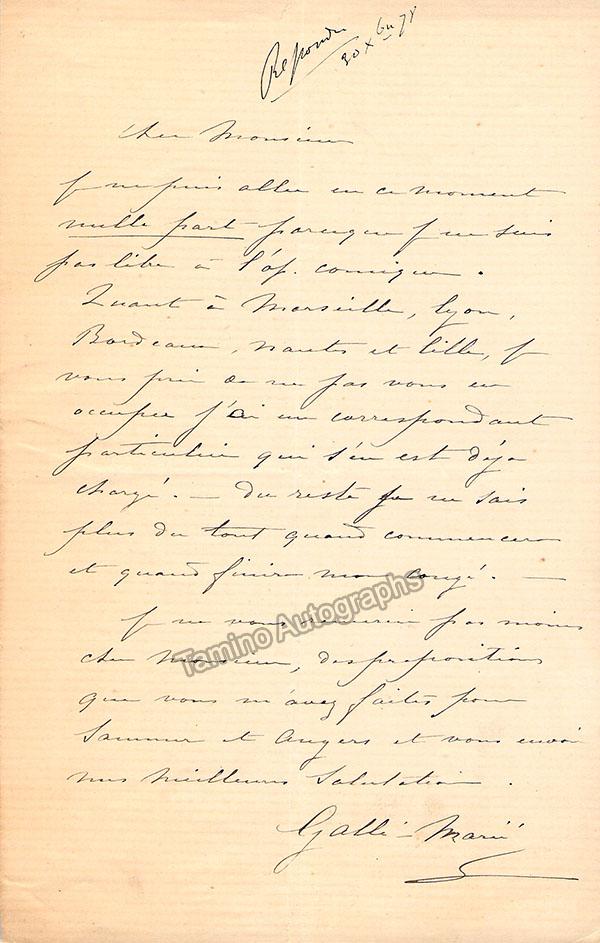 Répondu
30 Xbre 78
Cher Monsieur
Je ne puis aller en ce moment
nulle part parceque je ne suis
pas libre à l'op. comique.
Quant à Marseille, Lyon,
Bordeaux, Nantes et Lille, je
vous prie de ne pas vous en
occuper j'ai un correspondant
particulier qui s'en est déja
chargé. — Du reste je ne sais
plus du tout quand commencera
et quand finira mon congé. —
Je ne vous remercie pas moins
cher Monsieur, des propositions
que vous m'avez faites pour
Saumur et Angers et vous envoie
mes meilleures salutations.
Galli-Marié
Tamino Autographs